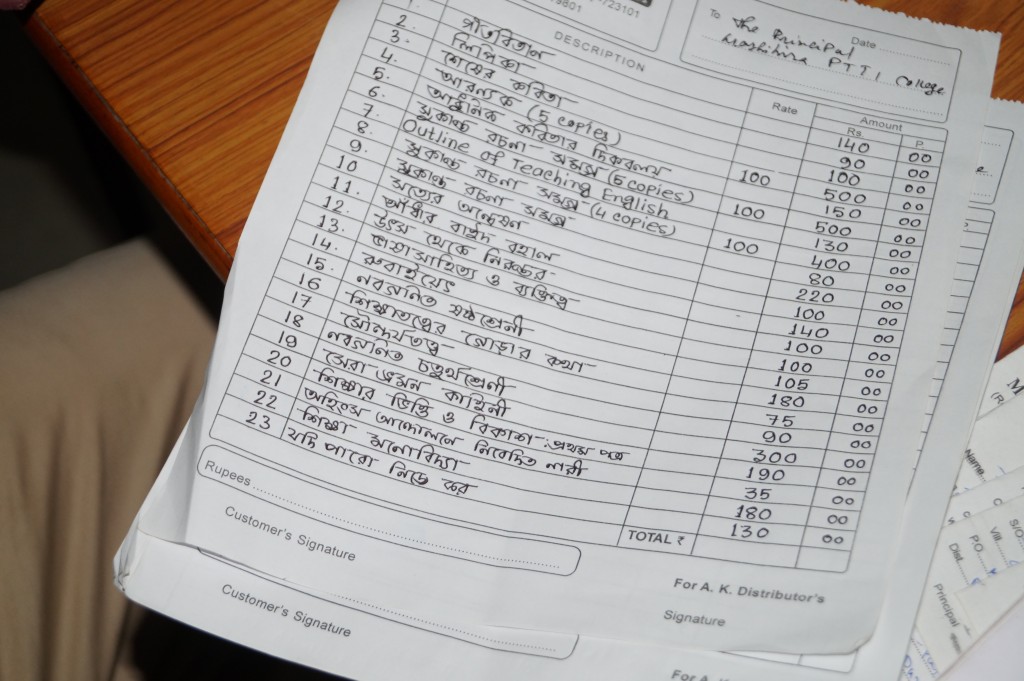 9801 723101
To The Principal
PTTI College
Date
DESCRIPTION Rate Amount
Rs. P.
1. 140 00
2. গীতবিতান 90 00
3. লিপিকা 100 00
4. শেষের কবিতা
আরন্যক (5 copies) 100 500 00
5. আধুনিক কবিতার দিকবলয় 150 00
6. সুকান্ত রচনা সমগ্র (5 copies) 100 500 00
7. Outline of Teaching English 130 00
8. সুকান্ত রচনা সমগ্র (4 copies) 100 400 00
9. সত্যের অন্বেষণ 80 00
10 আঁধার বাইদ বহাল 220 00
11. উৎস থেকে নিরন্তর 100 00
12. ভাষা সাহিত্য ও ব্যক্তিত্ব 140 00
13. রুবাইয়েৎ 100 00
14. নবগনিত ষষ্ঠশ্রেনী 100 00
15. শিক্ষাতত্ত্বের গোড়ার কথা 105 00
16 সৌন্দর্যতত্ত্ব 180 00
17 নবগনিত চতুর্থশ্রেনী 75 00
18 সেরা ভ্রমন কাহিনী 90 00
19 শিক্ষার ভিত্তি ও বিকাশ :প্রথম পত্র 300 00
20 অহিংস আন্দোলনে নিবেদিত নারী 190 00
21 শিক্ষা মনোবিদ্যা 35 00
22 180 00
23 যদি পারো 130 00
TOTAL ₹
Rupees
Customer's Signature
For A. K. Distributor's
Signature
Customer's Signature
For A.
Name
S/O
Vill.
P.O.
Dist.
Principal